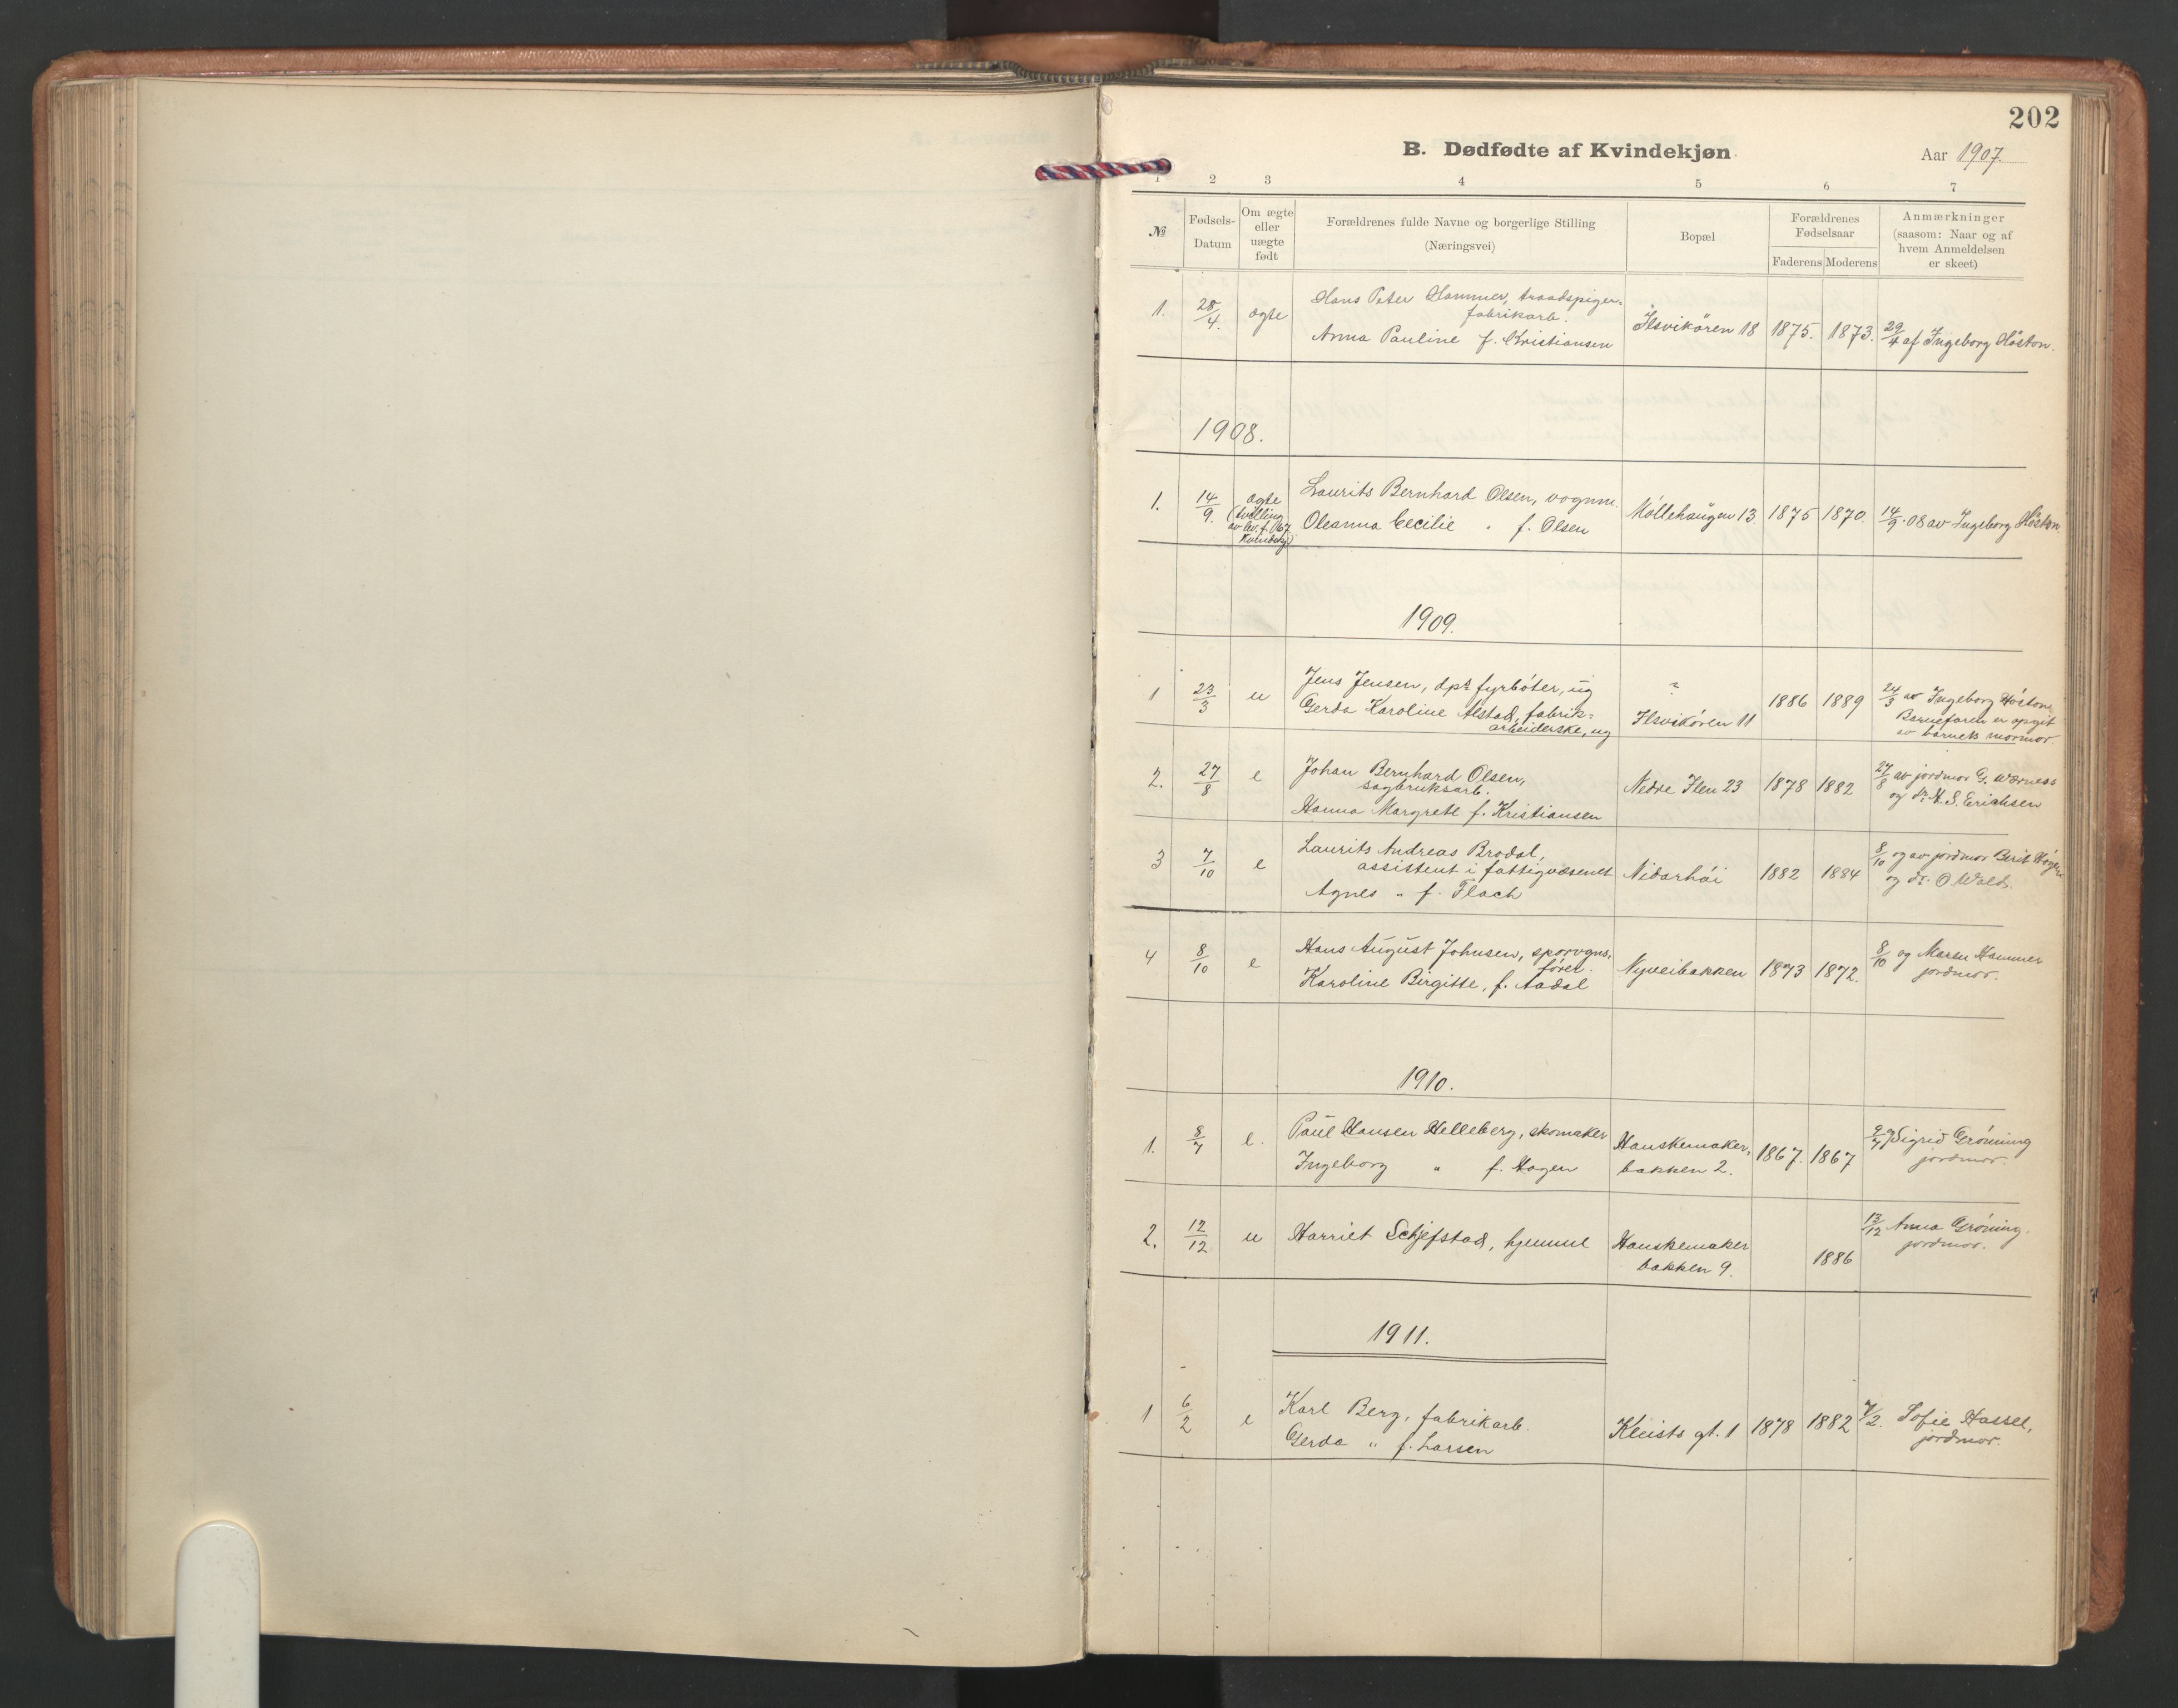 202
B. Dødfødte af Kvindekjøn
Aar 1907.
1 2 3 4 5 6 7
№
Fødsels-
Datum
Om ægte
eller
uægte
født
Forældrenes fulde Navne og borgerlige Stilling
(Næringsvei)
Bopæl
Forældrenes
Fødselsaar
Faderens Moderens
Anmærkninger
(saasom: Naar og af
hvem Anmeldelsen
er skeet)
1. 28/4. ægte
Hans Peter Hammer, traadspiger=
fabrikarb.
Anna Pauline f. Kristiansen
Ilsvikören 18 1875. 1873. 29/4 af Ingeborg Höston.
1908.
1. 14/9. ægte
(tvilling
av lev. f. 167
Kvindekj)
Laurits Bernhard Olsen, vognm.
Oleanna Cecilie " f. Olsen
Möllehaugen 13 1875 1870. 14/9.08 av Ingeborg Höston
1909.
1 23/3 u
Jens Jensen, dpsk fyrböter, ug
Gerda Karoline Alstad, fabrik=
arbeiderske, ug
?
Ilsvikören 11
1886 1889
24/3 av Ingeborg Höston
Barnefaren er opgit
av barnets mormor.
2. 27/8 e
Johan Bernhard Olsen,
sagbruksarb.
Hanna Margrete f. Kristiansen
Nedre Ilen 23 1878 1882
27/8 av jordmor G. Værness
og dr. H. S. Erichsen
3 7/10 e
Laurits Andreas Brodal,
assistent i fattigvæsenet
Agnes " f. Flach
Nidarhöi 1882 1884
8/10 og av jordmor Berit
og dr. O Wald.
4 8/10 e
Hans August Johnsen, sporvogns.
förer.
Karoline Birgitte, f. Aadal
Nyveibakken 1873 1872.
8/10 og Maren Hammer
jordmor.
1910.
1. 8/7 e.
Paul Hansen Helleberg, skomaker
Ingeborg " f. Hagen
Hanskemaker,
bakken 2.
1867. 1867
9/7 Sigrid Gröning
jordmor.
2. 12/12 u
Harriet Schjefstad, hjemme
Hanskemaker
bakken 9.
1886
13/12 Anna Gröning.
jordmor.
1911.
1 6/2 e
Karl Berg, fabrikarb.
Gerda " f. Larsen
Kleists gt. 1 1878 1882
7/2. Sofie Hassel,
jordmor.